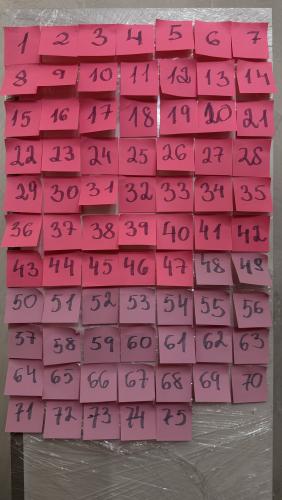 1 2 3 4 5 6 7
8 9 10 11 12 13 14
15 16 17 18 19 20 21
22 23 24 25 26 27 28
29 30 31 32 33 34 35
36 37 38 39 40 41 42
43 44 45 46 47 48 49
50 51 52 53 54 55 56
57 58 59 60 61 62 63
64 65 66 67 68 69 70
71 72 73 74 75